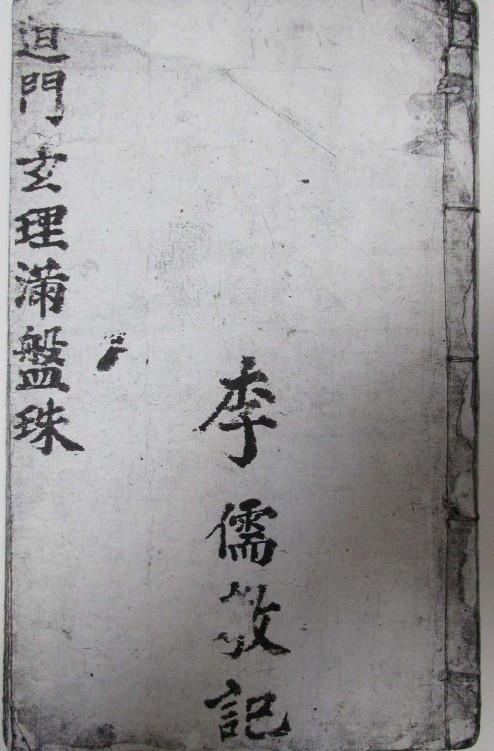 門玄理滿盤珠
李儒敬記